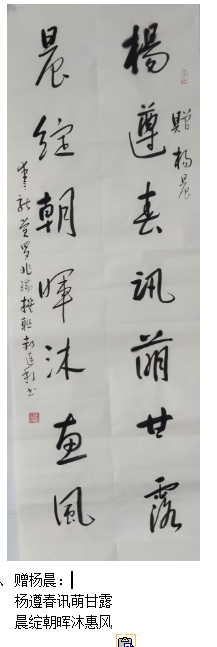 楊遵春讯萌甘露
贈杨晨
晨绽朝晖沐惠风
、赠杨晨：
杨遵春讯萌甘露
晨绽朝晖沐惠风